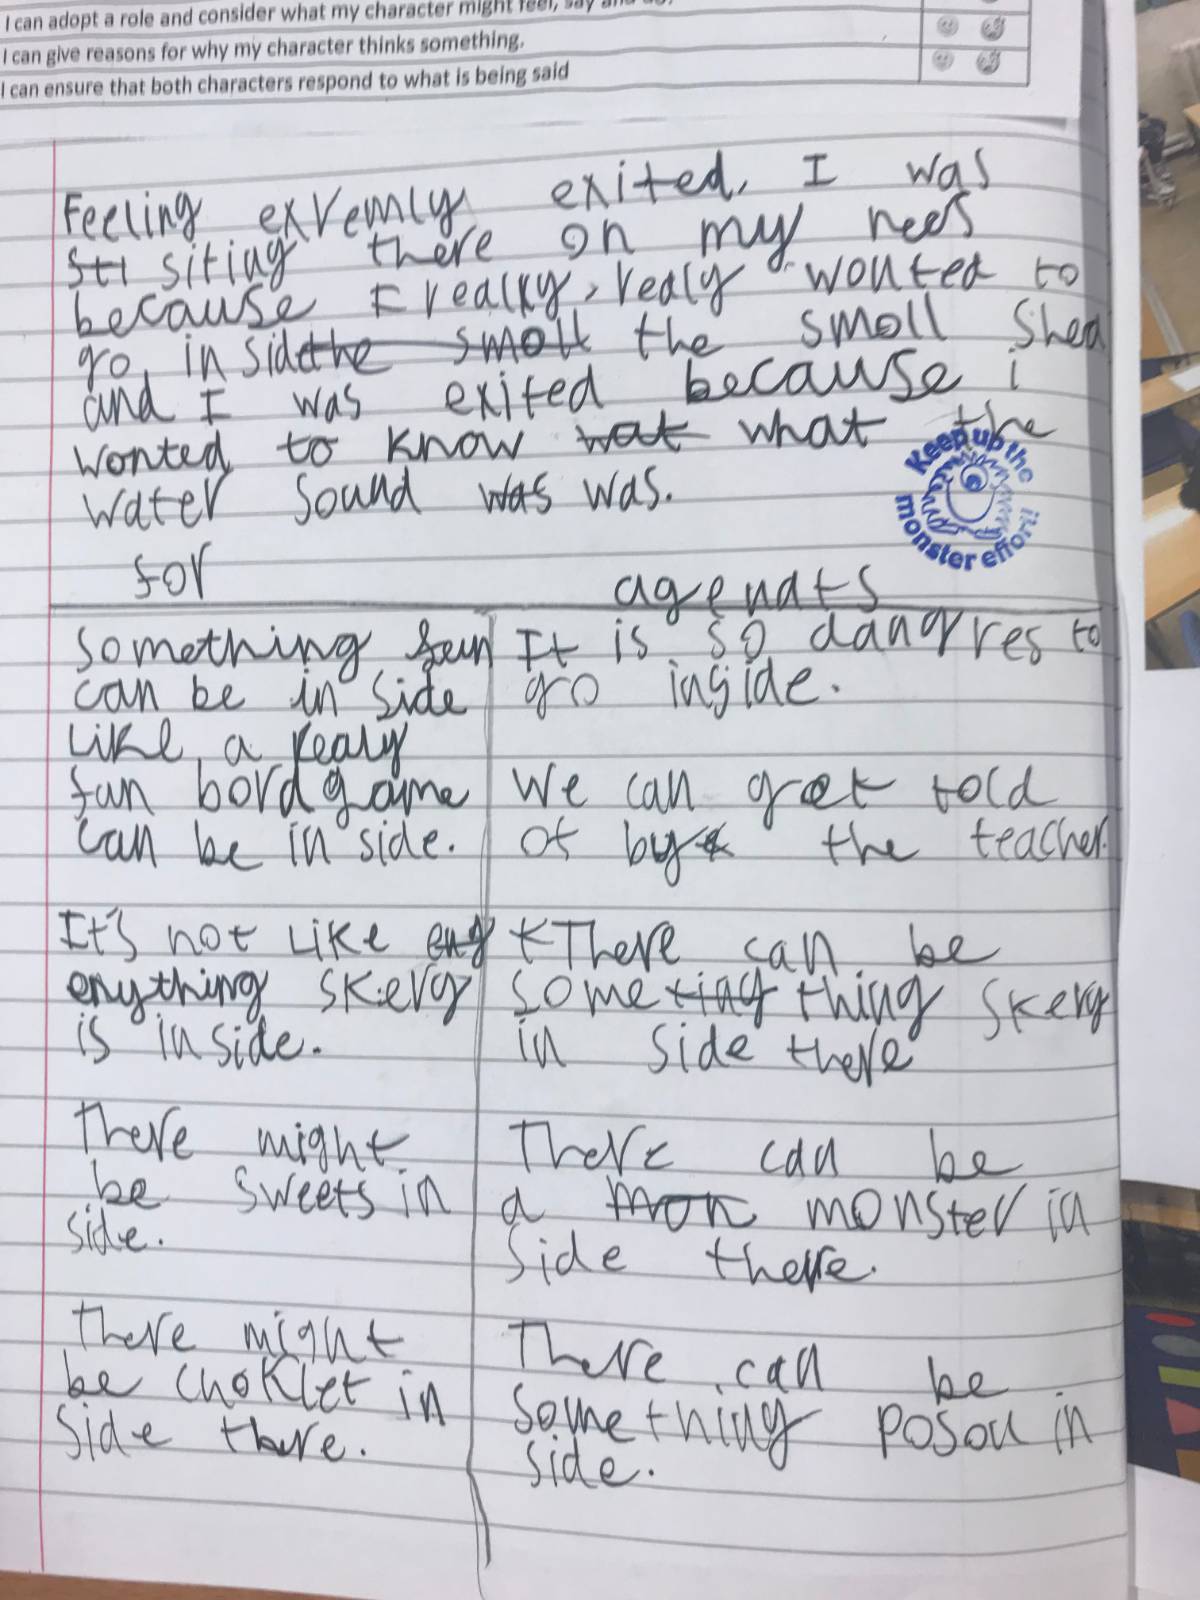 I can adopt a role and consider what my character might feel, say and do.
I can give reasons for why my character thinks something.
I can ensure that both characters respond to what is being said
Feeling exremly exited, I was
siting there on my nees
because I realy, realy wonted to
go inside the smoll shed
and I was exited because i
wonted to know what the
water sound was was.
Keep up the
monster effort!
for
agendts
Something fun
can be in side
like a realy
fun bord game
can be in side.
It's not like
enything skery
is inside.
There might
be sweets in
side.
There might
be choklet in
side there.
It is so dangres to
go inside.
We can get told
of by the teacher.
There can be
something skery
in side there
There can be
a monster in
side there.
There can be
something poson in
side.